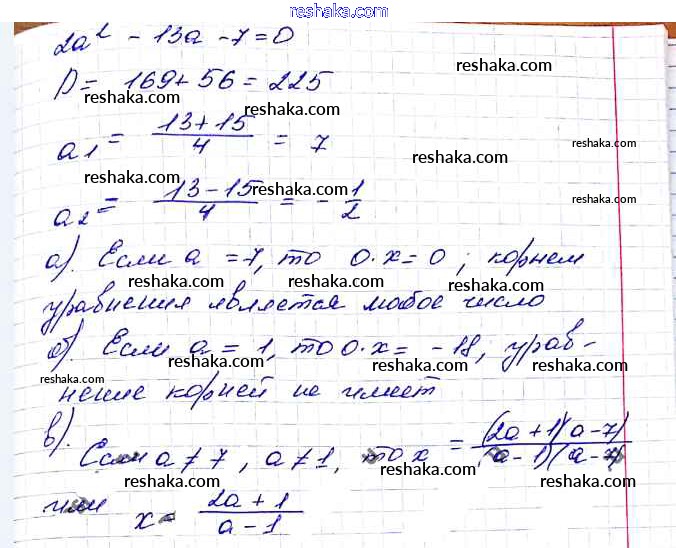 reshaka.com
2a² - 13a - 7 = 0
reshaka.com
D = 169 + 56 = 225
reshaka.com reshaka.com
a₁ = (13 + 15)/4 = 7
reshaka.com
reshaka.com reshaka.com
a₂ = (13 - 15)/4 = -1/2
reshaka.com reshaka.com
а). Если a = 7, то 0·x = 0; корнем
reshaka.com reshaka.com
уравнения является любое число
reshaka.com reshaka.com
б). Если a = 1, то 0·x = -18; урав-
reshaka.com reshaka.com
нение корней не имеет
reshaka.com
в).
Если a ≠ 7, a ≠ 1, то x = (2a + 1)(a - 7)/(a - 1)(a - 7)
reshaka.com reshaka.com
reshaka.com
или x = (2a + 1)/(a - 1)
reshaka.com reshaka.com